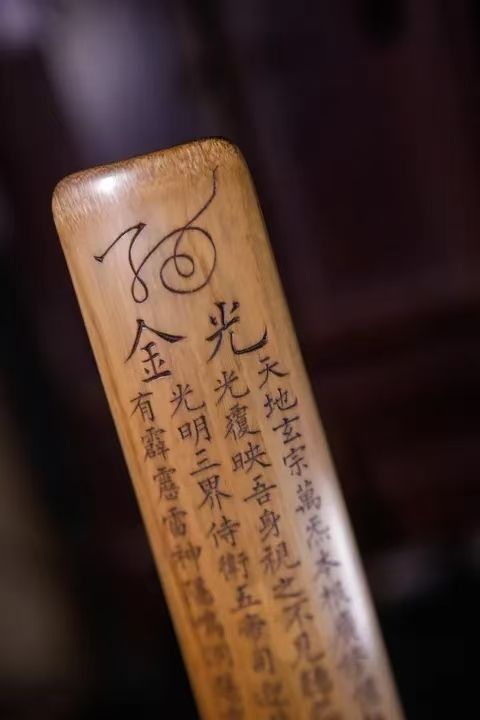 金光
天地玄宗萬炁本根
光覆映吾身視之不見聽
光明三界侍衛五帝司迎
有霹靂雷神隱